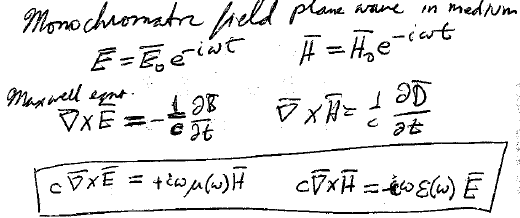 Monochromatic field plane wave in medium
E̅ = E̅₀e^{-iωt}   H̅ = H̅₀e^{-iωt}
Maxwell eqns.
∇̅×E̅ = -1/c ∂B̅/∂t   ∇̅×H̅ = 1/c ∂D̅/∂t
c∇̅×E̅ = +iωμ(ω)H̅   c∇̅×H̅ = -iωε(ω)E̅